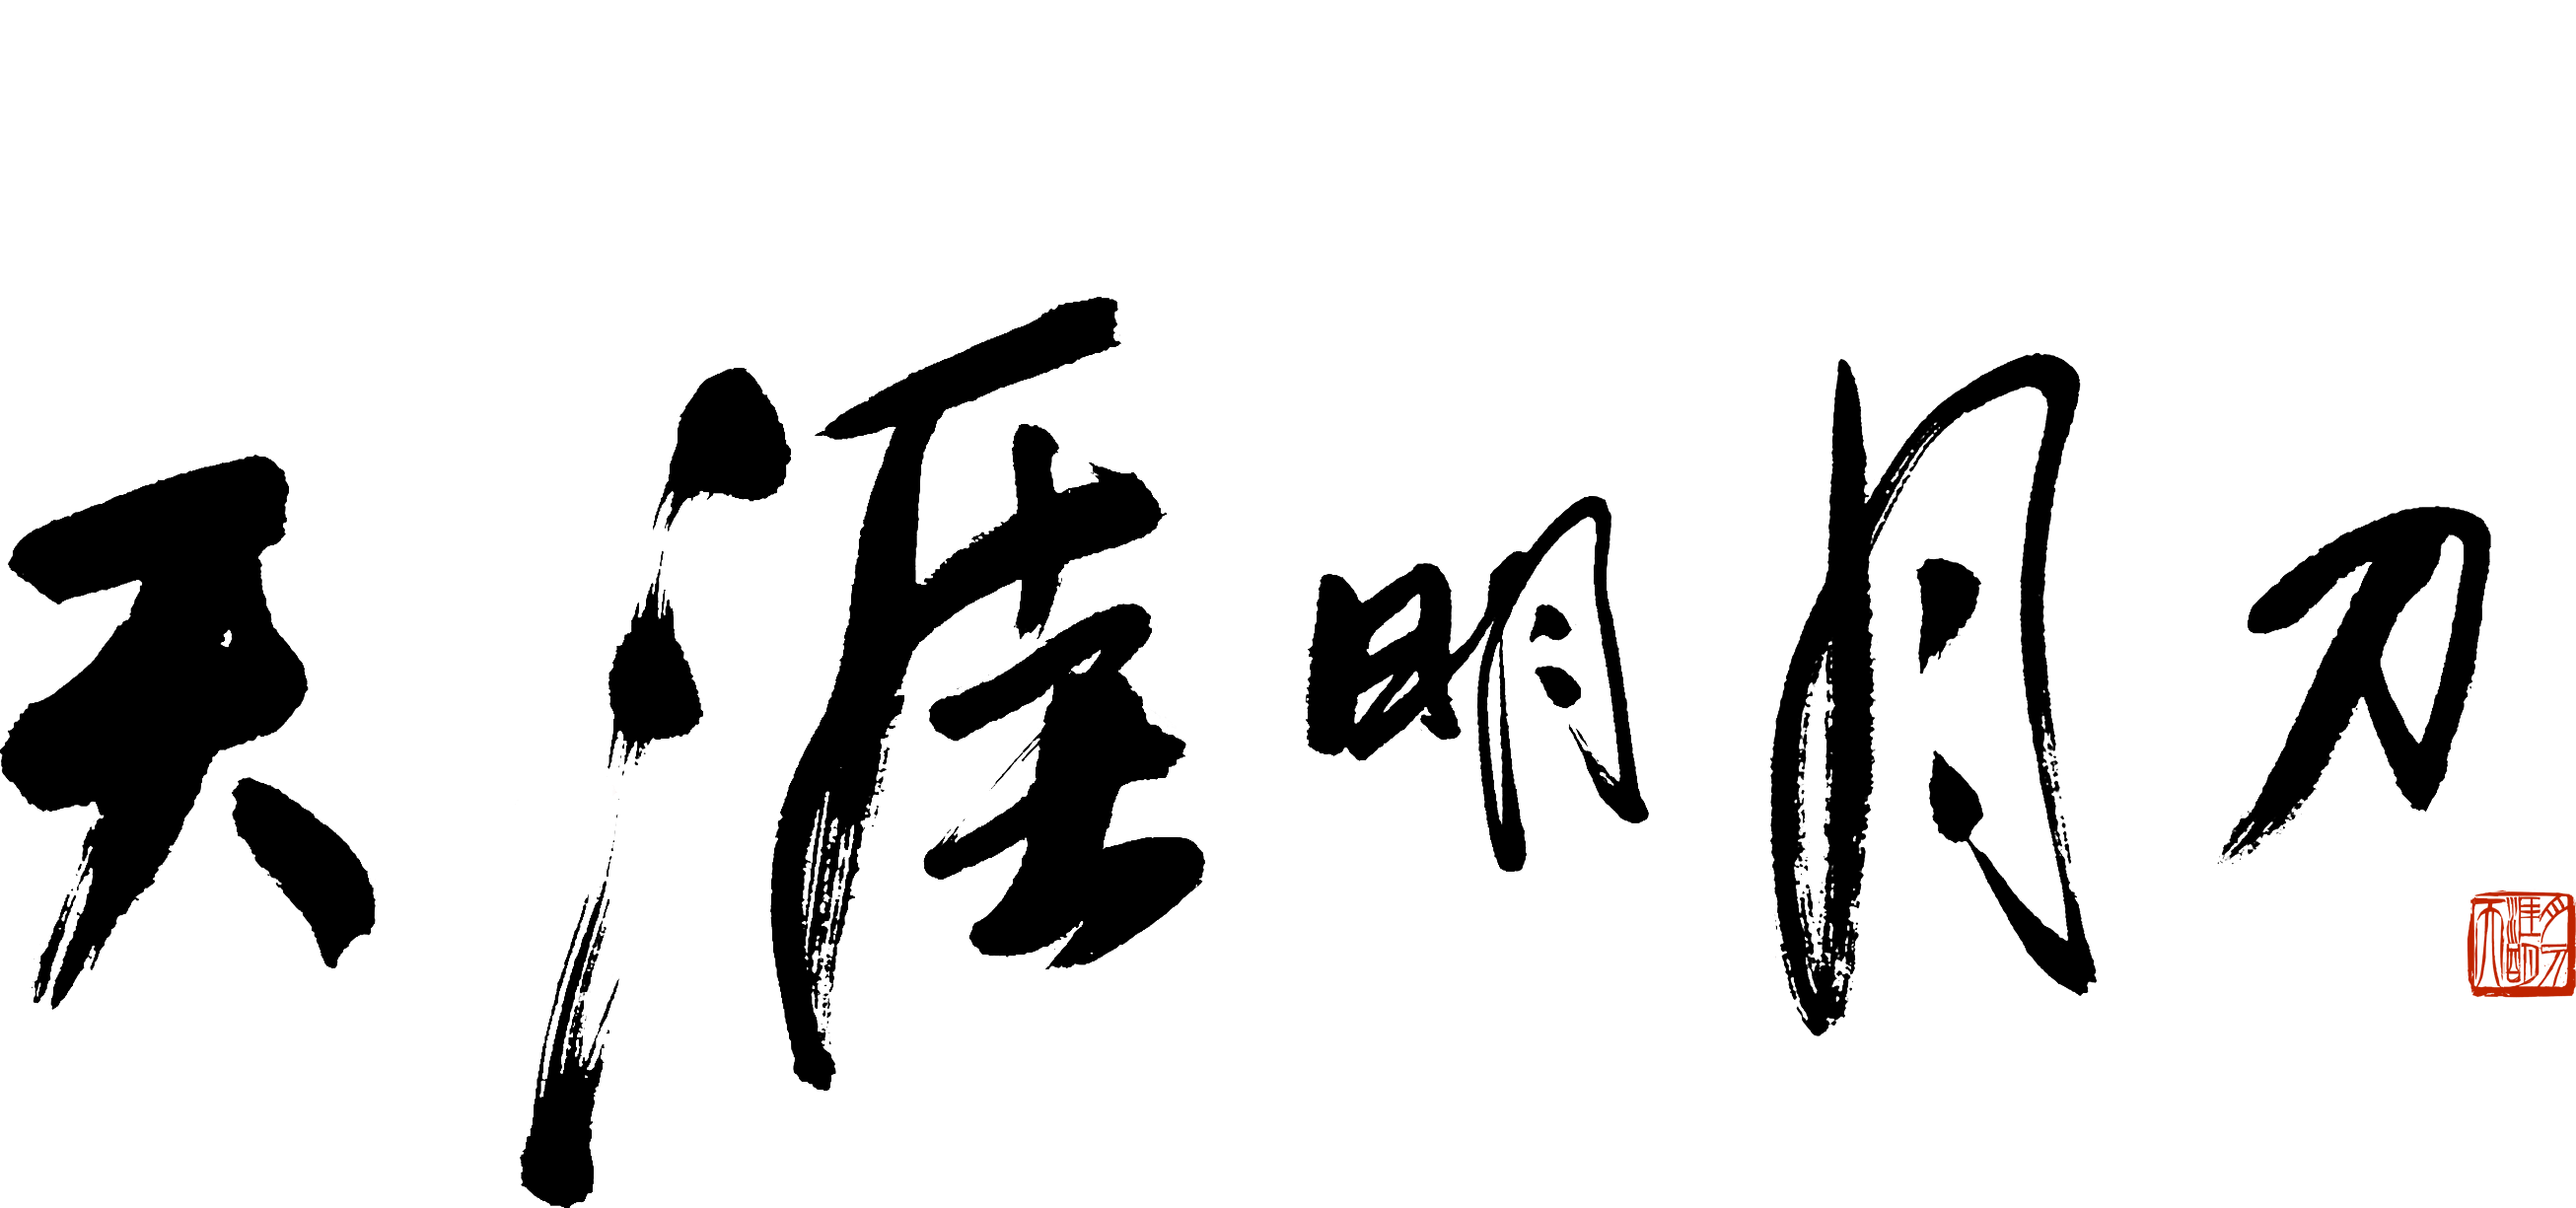 天涯明月刀
天涯明月刀